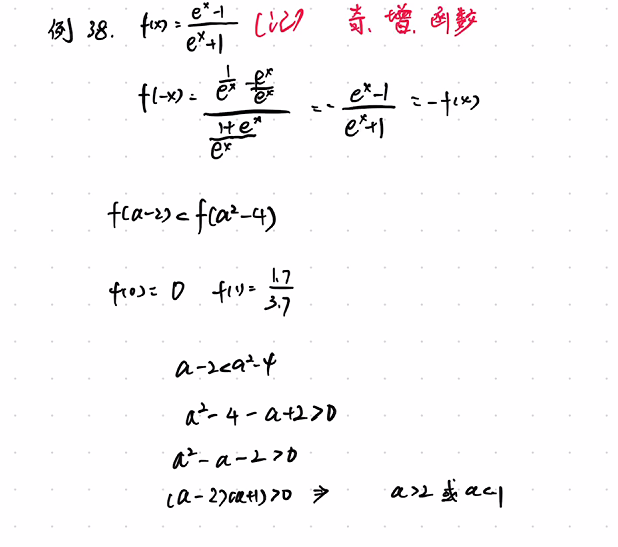 例 38. f(x) = \frac{e^x-1}{e^x+1} (记) 奇、增、函数
f(-x) = \frac{\frac{1}{e^x} - \frac{e^x}{e^x}}{\frac{1+e^x}{e^x}} = - \frac{e^x-1}{e^x+1} = -f(x)
f(a-2) < f(a²-4)
f(0) = 0 f(1) = \frac{1.7}{3.7}
a-2<a²-4
a²-4-a+2>0
a²-a-2>0
(a-2)(a+1)>0 ⇒ a>2 或 a<-1